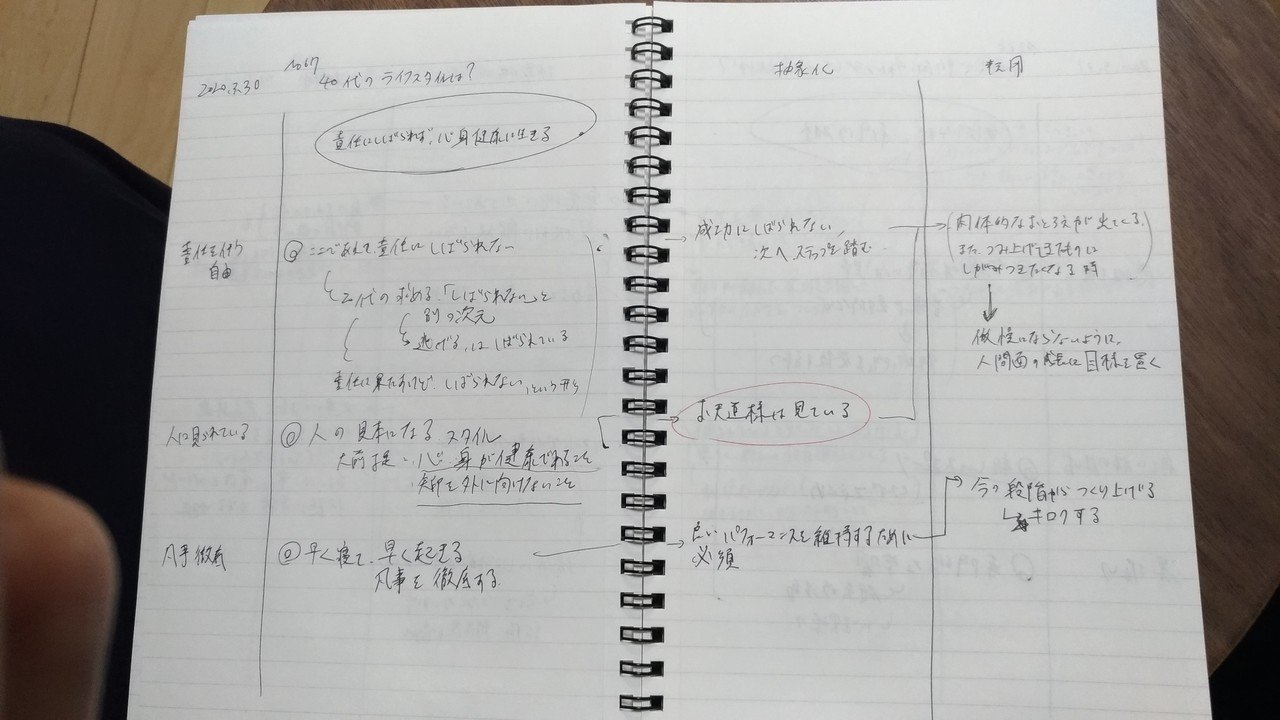 2020.3.30
no67
40代のライフスタイルは?
責任にしばられず、心身健康に生きる
責任を伴う
自由
ここであえて責任にしばられない
20代の求める「しばられない」と
別の次元
逃げる、にしばられている
責任は果たすけど、しばられない、という
人に見られている
人の見本になる スタイル
大前提、心身が健康であること
矢印を外に向けないこと
凡事徹底
早く寝て、早く起きる
凡事を徹底する
抽象化
転用
→成功にしばられない
次へステップを踏む
お天道様は見ている
→良いパフォーマンスを維持するために
必須
(肉体的なおとろえが出てくる。
また、つみ上げてきたものに
しがみつきたくなる時)
↓
傲慢にならないように、
人間面の 目標を置く
今の段階からつくり上げる
キロクする